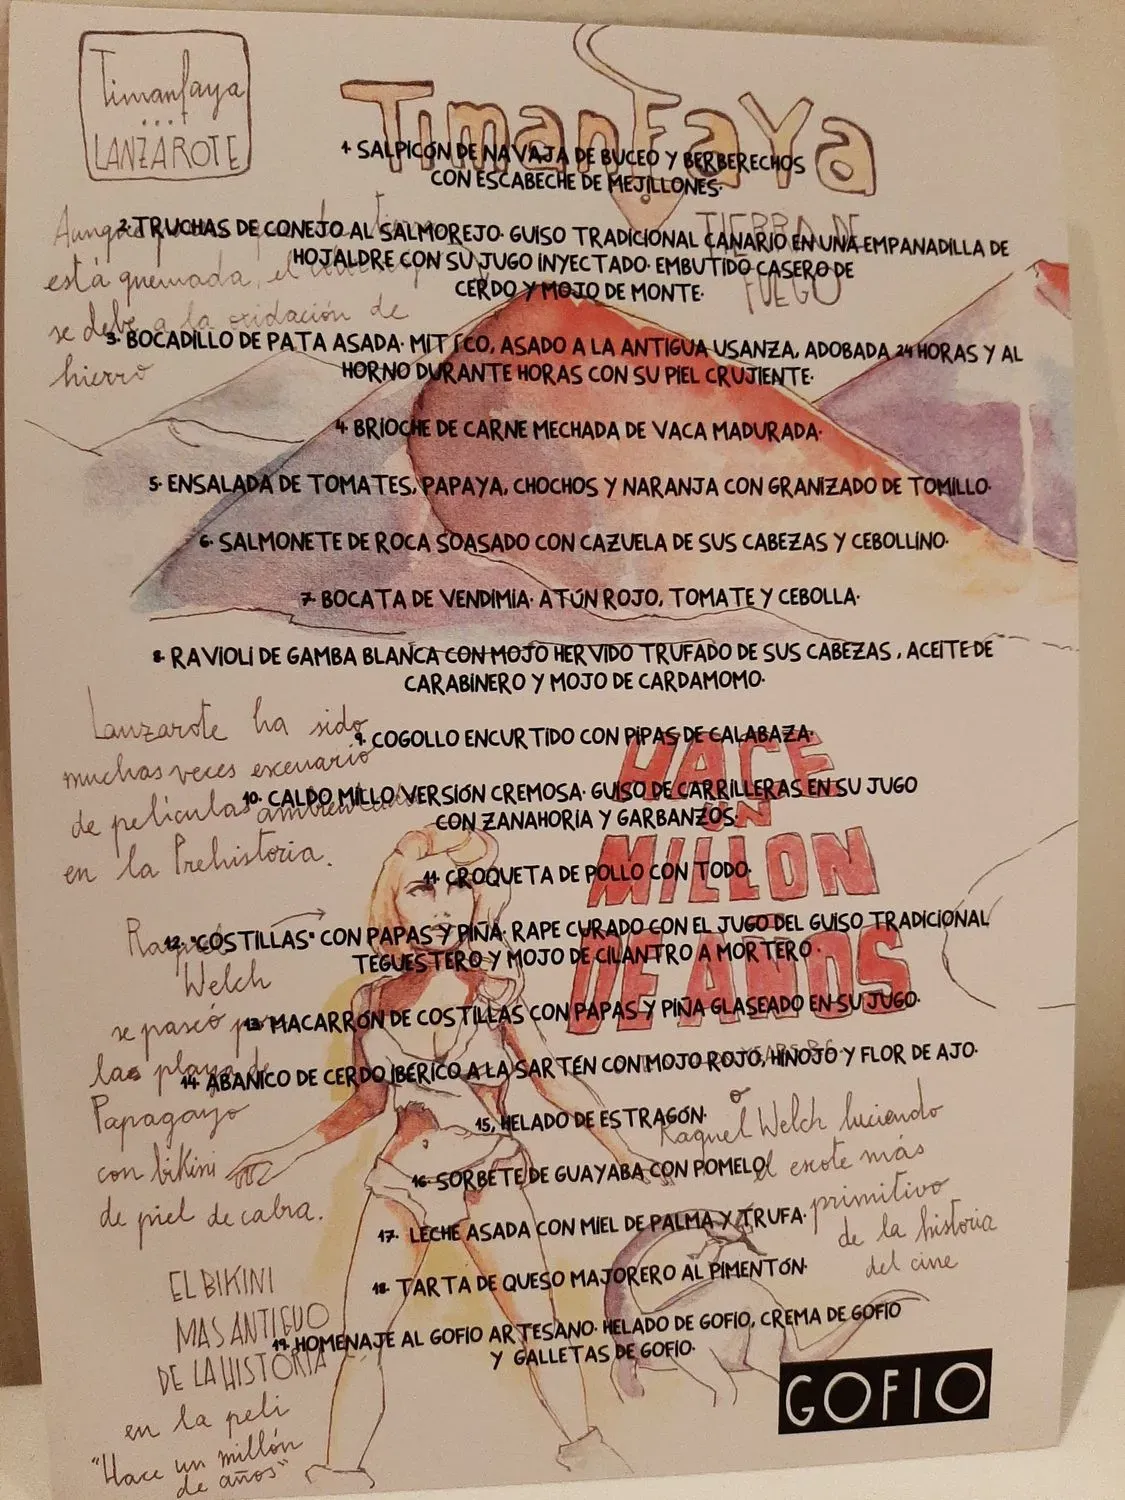 Timanfaya
...
LANZAROTE
TimanFaYa
TIERRA DE
FUEGO
1. SALPICÓN DE NAVAJA DE BUCEO Y BERBERECHOS
CON ESCABECHE DE MEJILLONES.
2. TRUCHAS DE CONEJO AL SALMOREJO. GUISO TRADICIONAL CANARIO EN UNA EMPANADILLA DE
HOJALDRE CON SU JUGO INYECTADO. EMBUTIDO CASERO DE
CERDO Y MOJO DE MONTE.
Aunque
está quemada, el
se debe a la oxidación de
hierro
3. BOCADILLO DE PATA ASADA. ASADO A LA ANTIGUA USANZA, ADOBADA 24 HORAS Y AL
HORNO DURANTE HORAS CON SU PIEL CRUJIENTE.
4. BRIOCHE DE CARNE MECHADA DE VACA MADURADA.
5. ENSALADA DE TOMATES, PAPAYA, CHOCHOS Y NARANJA CON GRANIZADO DE TOMILLO.
6. SALMONETE DE ROCA SOASADO CON CAZUELA DE SUS CABEZAS Y CEBOLLINO.
7. BOCATA DE VENDIMIA. ATÚN ROJO, TOMATE Y CEBOLLA.
8. RAVIOLI DE GAMBA BLANCA CON MOJO HERVIDO TRUFADO DE SUS CABEZAS, ACEITE DE
CARABINERO Y MOJO DE CARDAMOMO.
9. COGOLLO ENCURTIDO CON PIPAS DE CALABAZA.
10. CALDO MILLO VERSIÓN CREMOSA. GUISO DE CARRILLERAS EN SU JUGO
CON ZANAHORIA Y GARBANZOS.
Lanzarote ha sido
muchas veces escenario
de películas ambientadas
en la Prehistoria.
HACE
UN
MILLON
DE AÑOS
11. CROQUETA DE POLLO CON TODO.
12. "COSTILLAS" CON PAPAS Y PIÑA. RAPE CURADO CON EL JUGO DEL GUISO TRADICIONAL
TEGUESTERO Y MOJO DE CILANTRO A MORTERO.
13. MACARRÓN DE COSTILLAS CON PAPAS Y PIÑA GLASEADO EN SU JUGO.
14. ABANICO DE CERDO IBÉRICO A LA SARTÉN CON MOJO ROJO, HINOJO Y FLOR DE AJO.
15, HELADO DE ESTRAGÓN.
16. SORBETE DE GUAYABA CON POMELO.
17. LECHE ASADA CON MIEL DE PALMA Y TRUFA.
18. TARTA DE QUESO MAJORERO AL PIMENTÓN.
19. HOMENAJE AL GOFIO ARTESANO. HELADO DE GOFIO, CREMA DE GOFIO
Y GALLETAS DE GOFIO.
Raquel
Welch
se paseó por
las playas de
Papagayo
con bikini
de piel de cabra.
o
Raquel Welch luciendo
el escote más
primitivo
de la historia
del cine
EL BIKINI
MAS ANTIGUO
DE LA HISTORIA
en la peli
"Hace un millón
de años"
GOFIO